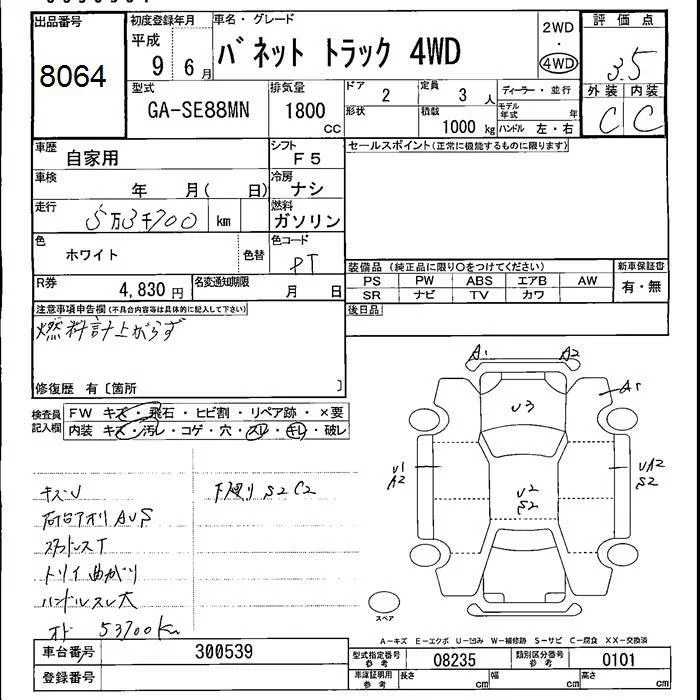 出品番号
8064
初度登録年月
平成 9 6月
車名・グレード
バネット トラック 4WD
2WD
・
4WD
評価点
3.5
外装 内装
C C
型式
GA-SE88MN
排気量
1800 cc
ドア 2
形状
定員 3 人
積載 1000 kg
ディーラー・並行
モデル年式 年
ハンドル 左・右
車歴 自家用
シフト F5
車検 年 月( 日)
冷房 ナシ
走行 5万3千700 km
燃料 ガソリン
色 ホワイト 色替
色コード PT
R券 4,830 円
名変通知期限 月 日
セールスポイント(正常に機能するものに限ります)
装備品(純正品に限り○をつけてください)
PS PW ABS エアB AW
SR ナビ TV カワ
新車保証書
有・無
後日品
注意事項申告欄(不具合内容等は具体的に記入して下さい)
燃料計上がらず
修復歴 有〔箇所 〕
検査員記入欄
FW キズ・飛石・ヒビ割・リペア跡・×要
内装 キズ・汚レ・コゲ・穴・スレ・キレ・破レ
キズU
下廻り S2 C2
荷台アオリ AUS
スタッドレスT
トリイ曲がり
ハンドルスレ大
オド 53700Km
A1 A2
A1
U3
U1
A2
UA2
S2
U2
S2
スペア
A−キズ E−エクボ U−凹み W−補修跡 S−サビ C−腐食 XX−交換済
車台番号 300539
登録番号
型式指定番号 参考 08235
類別区分番号 参考 0101
車庫証明用 参考 長さ cm 幅 cm 高さ cm